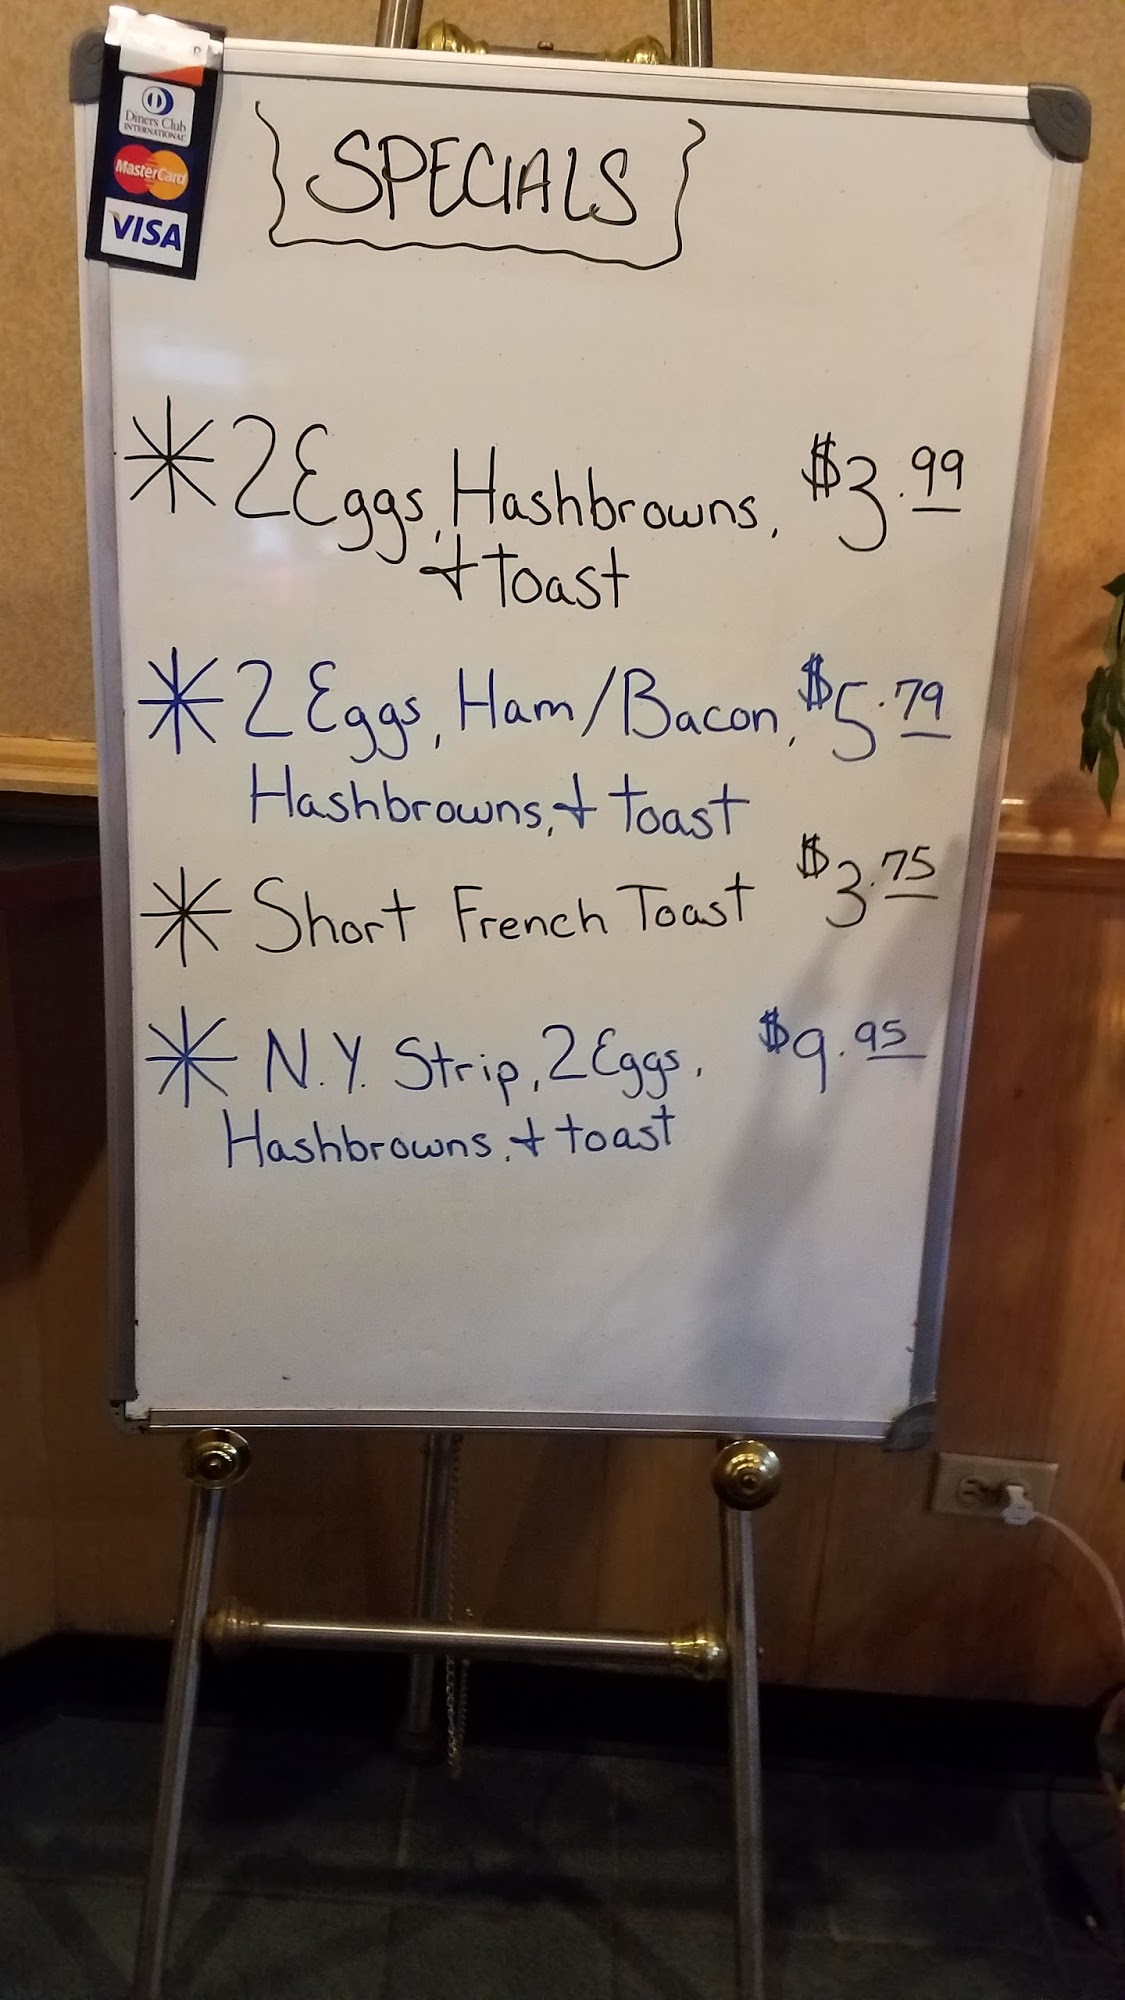 Diners Club
INTERNATIONAL
MasterCard
VISA
SPECIALS
* 2 Eggs, Hashbrowns, $3.99
+ toast
* 2 Eggs, Ham/Bacon, $5.79
Hashbrowns, + toast
* Short French Toast $3.75
* N.Y. Strip, 2 Eggs, $9.95
Hashbrowns, + toast